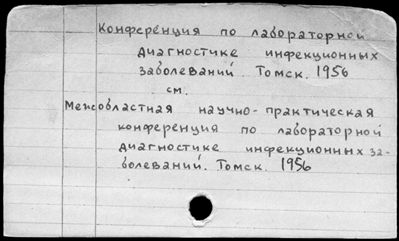 Конференция по лабораторной
диагностике инфекционных
заболеваний. Томск. 1956
см.
Межобластная научно-практическая
конференция по лабораторной
диагностике инфекционных за-
болеваний. Томск. 1956